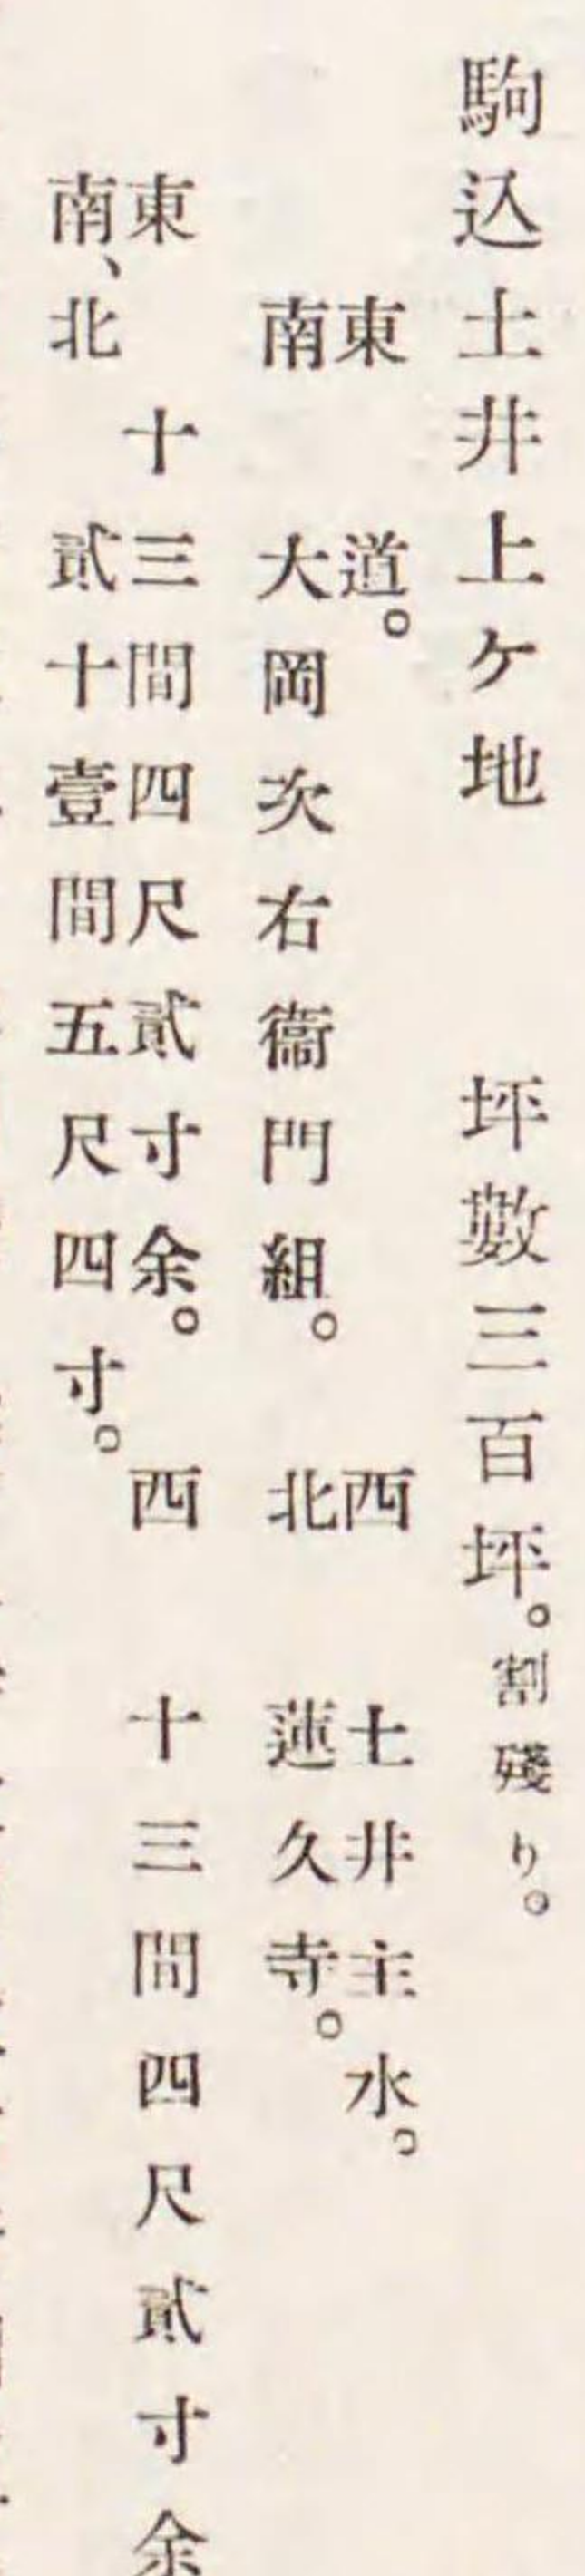 駒込土井上ヶ地　坪數三百坪。割殘り。
東　道。　西　土井主水。
南　大岡次右衞門組。　北　蓮久寺。
東　十三間四尺貳寸余。　西　十三間四尺貳寸余
南、北　貳十壹間五尺四寸。